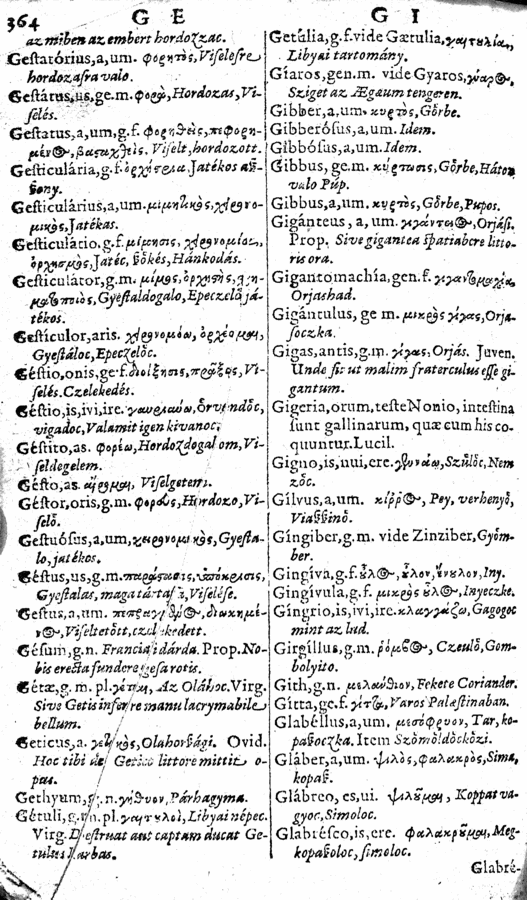 364 G E G I
az miben az embert hordozzac.
Gestatórius, a, um. φορητὸς, Viselesre
hordozasra valo.
Gestátus, us, ge. m. φορὰ, Hordozas, Vi-
selés.
Gestatus, a, um, g. f. φορηθεὶς, πεφορη-
μένος, βασαχθεὶς. Viselt, hordozott.
Gesticulária, g. f. ὀρχήστρια Jatékos aß-
ßony.
Gesticulárius, a, um. μιμητικὸς, χειρονο-
μικὸς, Jatékas.
Gesticulátio, g. f. μίμησις, χειρονομία,
ὀρχησμὸς, Jatéc, ßökés, Hánkodás.
Gesticulátor, g. m. μῖμος, ὀρχηστὴς,
Gyestaldogalo, Epeczelö já-
tékos.
Gestículor, aris. χειρονομέω, ὀρχέομαι,
Gyestáloc, Epeczelöc.
Géstio, onis, ge. f. διοίκησις, πρᾶξις, Vi-
selés. Czelekedés.
Géstio, is, ivi, ire. γαυριάω, örvendöc,
vigadoc, Valamit igen kivanoc.
Géstito, as. φορέω, Hordozdogalom, Vi-
seldegelem.
Gésto, as. Viselgetem.
Géstor, oris, g. m. φορεὺς, Hordozo, Vi-
selö.
Gestuósus, a, um, χειρονομικὸς, Gyesta-
lo, jatékos.
Géstus, us, g. m. παράστασις, ὑπόκρισις,
Gyestalas, maga tartasa, Viselése.
Gestus, a, um. διωκημέ-
νος, Viseltetött, czelekedett.
Gésum, g. n. Franciai dárda. Prop. No-
bis erecta fundere gesa rotis.
Gétæ, g. m. pl. γέται, Az Oláhoc. Virg.
Sive Getis inferre manu lacrymabile
bellum.
Geticus, a. γετικὸς, Olahorßági. Ovid.
Hoc tibi de Getico littore mittit o-
pus.
Gethyum, g. n. γήθυον, Párhagyma.
Gétuli, g. m. pl. γαιτυλοὶ, Libyai népec.
Virg. Destruat aut captam ducat Ge-
tulus Iarbas.
Getúlia, g. f. vide Gætulia, γαιτυλία,
Libyai tartomány.
Gíaros, gen. m. vide Gyaros, γύαρος,
Sziget az Ægæum tengeren.
Gibber, a, um. κυρτὸς, Görbe.
Gibberósus, a, um. Idem.
Gibbósus, a, um. Idem.
Gibbus, ge. m. κύρτωσις, Görbe, Háton
valo Púp.
Gibbus, a, um. κυρτὸς, Görbe, Pupos.
Gigánteus, a, um. γιγάντειος, Orjási.
Prop. Sive gigantea spatiabere litto-
ris ora.
Gigantomachía, gen. f. γιγαντομαχία,
Orjashad.
Gigántulus, ge m. μικρὸς γίγας, Orja-
soczka.
Gigas, antis, g. m. γίγας, Orjás. Juven.
Unde fit ut malim fraterculus esse gi-
gantum.
Gigeria, orum, teste Nonio, intestina
sunt gallinarum, quæ cum his co-
quuntur. Lucil.
Gigno, is, nui, ere. γεννάω, Szülöc, Nem
zöc.
Gílvus, a, um. κίῤῥος, Pey, verhenyö,
Viaßßinö.
Gíngiber, g. m. vide Zinziber, Gyöm-
ber.
Gingíva, g. f. οὖλος, οὖλον, ἔνουλον, Iny.
Gingívula, g. f. μικρὸς οὖλος, Inyeczke.
Gíngrio, is, ivi, ire. κλαγγάζω, Gagogoc
mint az lud.
Girgíllus, g. m. ῥόμβος, Czeulö, Gom-
bolyito.
Gith, g. n. μελάνθιον, Fekete Coriander.
Gitta, ge. f. γίττα, Varos Palæstinaban.
Glabéllus, a, um. μεσόφρυον, Tar, ko-
paßoczka. Item Szömöldöcközi.
Gláber, a, um. ψιλὸς, φαλακρὸς, Sima,
kopaß.
Glábreo, es, ui. ψιλοῦμαι, Koppat va-
gyoc, Simoloc.
Glabrésco, is, ere. φαλακροῦμαι, Meg-
kopaßoloc, simoloc.
Glabré-